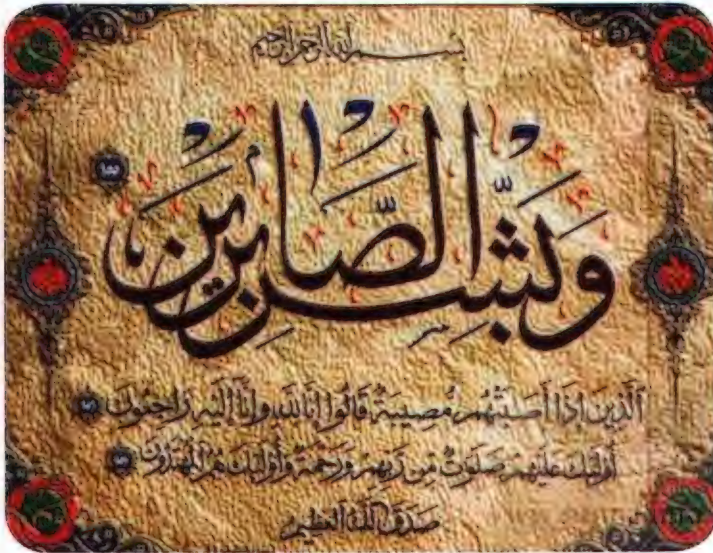 بسم الله الرحمن الرحيم
وَبَشِّرِ الصَّابِرِينَ ١٥٥
ٱلَّذِينَ إِذَا أَصَٰبَتْهُم مُّصِيبَةٌ قَالُوا إِنَّا لِلَّهِ وَإِنَّا إِلَيْهِ رَاجِعُونَ ١٥٦
أُولَٰئِكَ عَلَيْهِمْ صَلَوَاتٌ مِّن رَّبِّهِمْ وَرَحْمَةٌ وَأُولَٰئِكَ هُمُ الْمُهْتَدُونَ ١٥٧
صدق الله العظيم